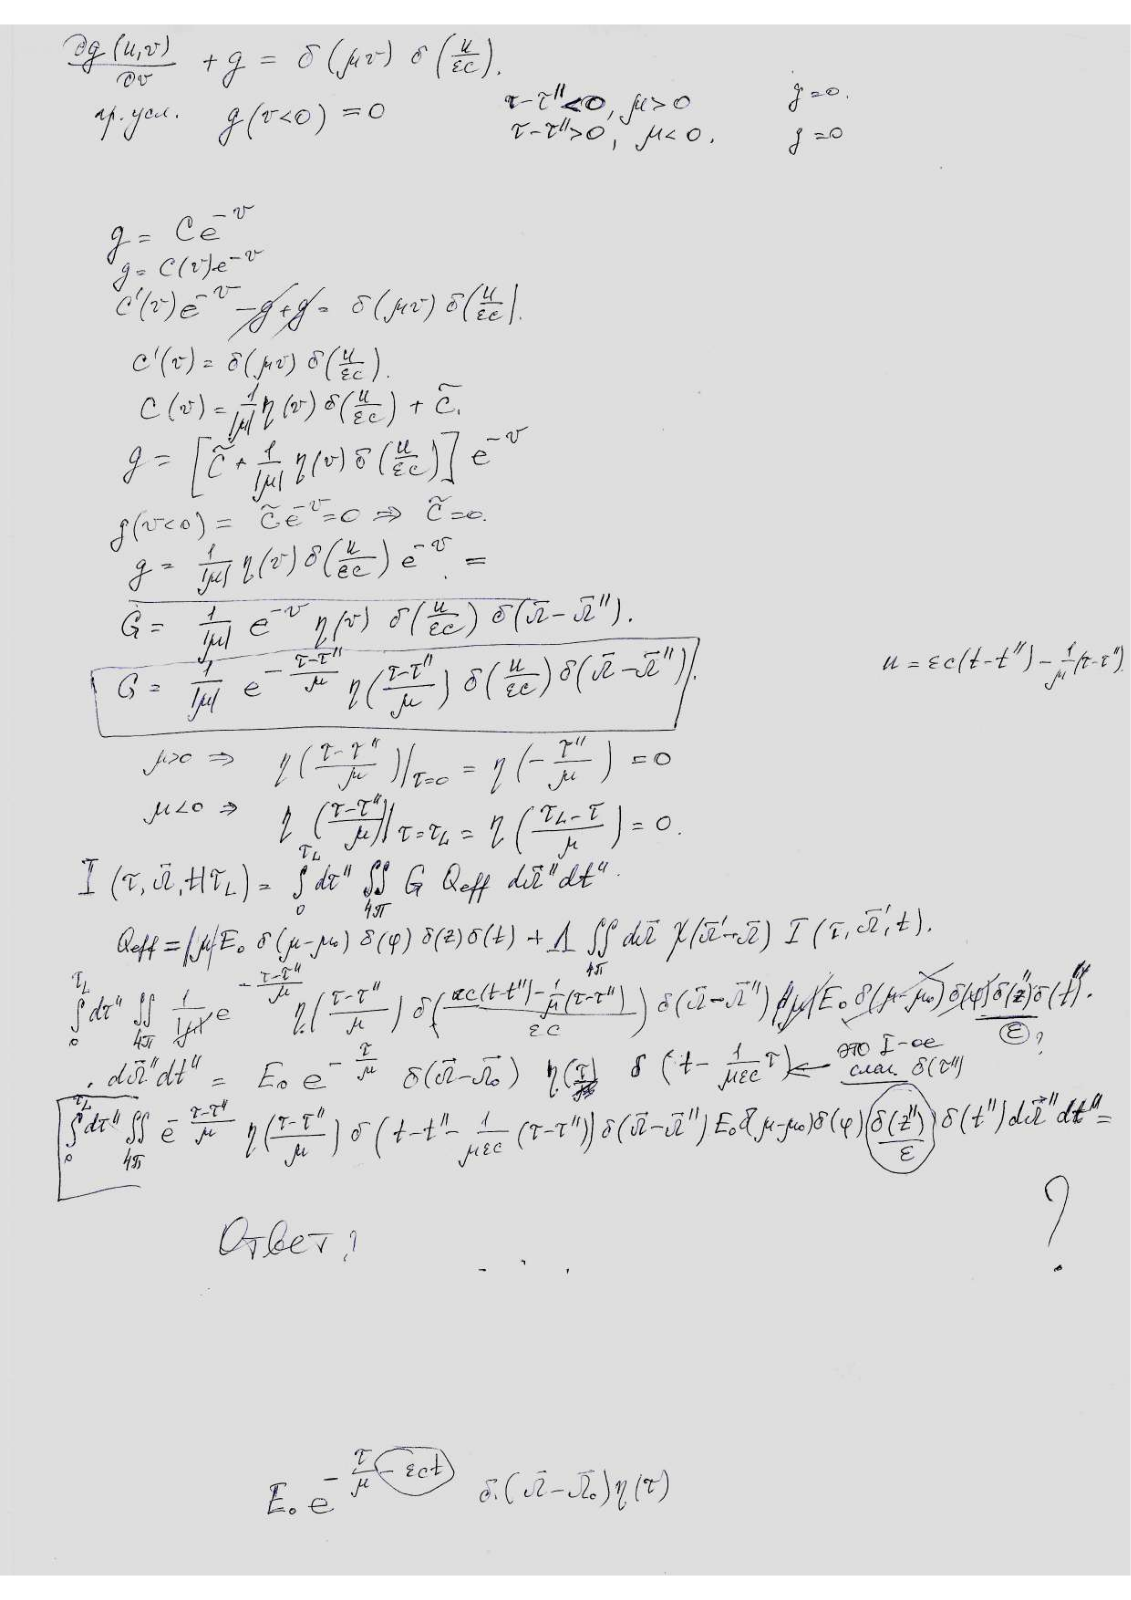 ∂g(u,v)/∂v + g = δ(μv) δ(u/εc).
гр.усл. g(v<0) = 0 τ-τ''<0, μ>0 g=0.
τ-τ''>0, μ<0. g=0
g = Ce^{-v}
g = C(v)e^{-v}
C'(v)e^{-v} - g + g = δ(μv) δ(u/εc).
C'(v) = δ(μv) δ(u/εc).
C(v) = 1/|μ| η(v) δ(u/εc) + C̃.
g = [C̃ + 1/|μ| η(v) δ(u/εc)] e^{-v}
g(v<0) = C̃e^{-v} = 0 ⇒ C̃=0.
g = 1/|μ| η(v) δ(u/εc) e^{-v} =
G = 1/|μ| e^{-v} η(v) δ(u/εc) δ(Ω̄-Ω̄'').
G = 1/|μ| e^{-(τ-τ'')/μ} η((τ-τ'')/μ) δ(u/εc) δ(Ω̄-Ω̄''). u = εc(t-t'') - 1/μ(τ-τ'')
μ>0 ⇒ η((τ-τ'')/μ)|τ=0 = η(-τ''/μ) = 0
μ<0 ⇒ η((τ-τ'')/μ)|τ=τ_L = η((τ_L-τ)/μ) = 0.
I(τ,Ω̄,t|τ_L) = ∫_0^{τ_L} dτ'' ∫∫_{4π} G Qeff dΩ̄''dt''.
Qeff = |μ|E₀ δ(μ-μ₀) δ(φ) δ(z) δ(t) + Λ ∫∫_{4π} dΩ̄ χ(Ω̄'→Ω̄) I(τ,Ω̄',t).
∫_0^{τ_L} dτ'' ∫∫_{4π} 1/|μ| e^{-(τ-τ'')/μ} η((τ-τ'')/μ) δ((εc(t-t'')-1/μ(τ-τ''))/εc) δ(Ω̄-Ω̄'') |μ| E₀ δ(μ-μ₀) δ(φ) δ(z'')/ε δ(t'').
?
. dΩ̄''dt'' = E₀ e^{-τ/μ} δ(Ω̄-Ω̄₀) η(τ) δ(t - 1/(μεc) τ) ← это I-ое
слаг. δ(τ'')
∫_0^{τ_L} dτ'' ∫∫_{4π} e^{-(τ-τ'')/μ} η((τ-τ'')/μ) δ(t-t''-1/(μεc)(τ-τ'')) δ(Ω̄-Ω̄'') E₀ δ(μ-μ₀) δ(φ) δ(z'')/ε δ(t'') dΩ̄''dt'' =
Ответ? . . . ?
E₀ e^{-τ/μ - εct} δ(Ω̄-Ω̄₀) η(τ)